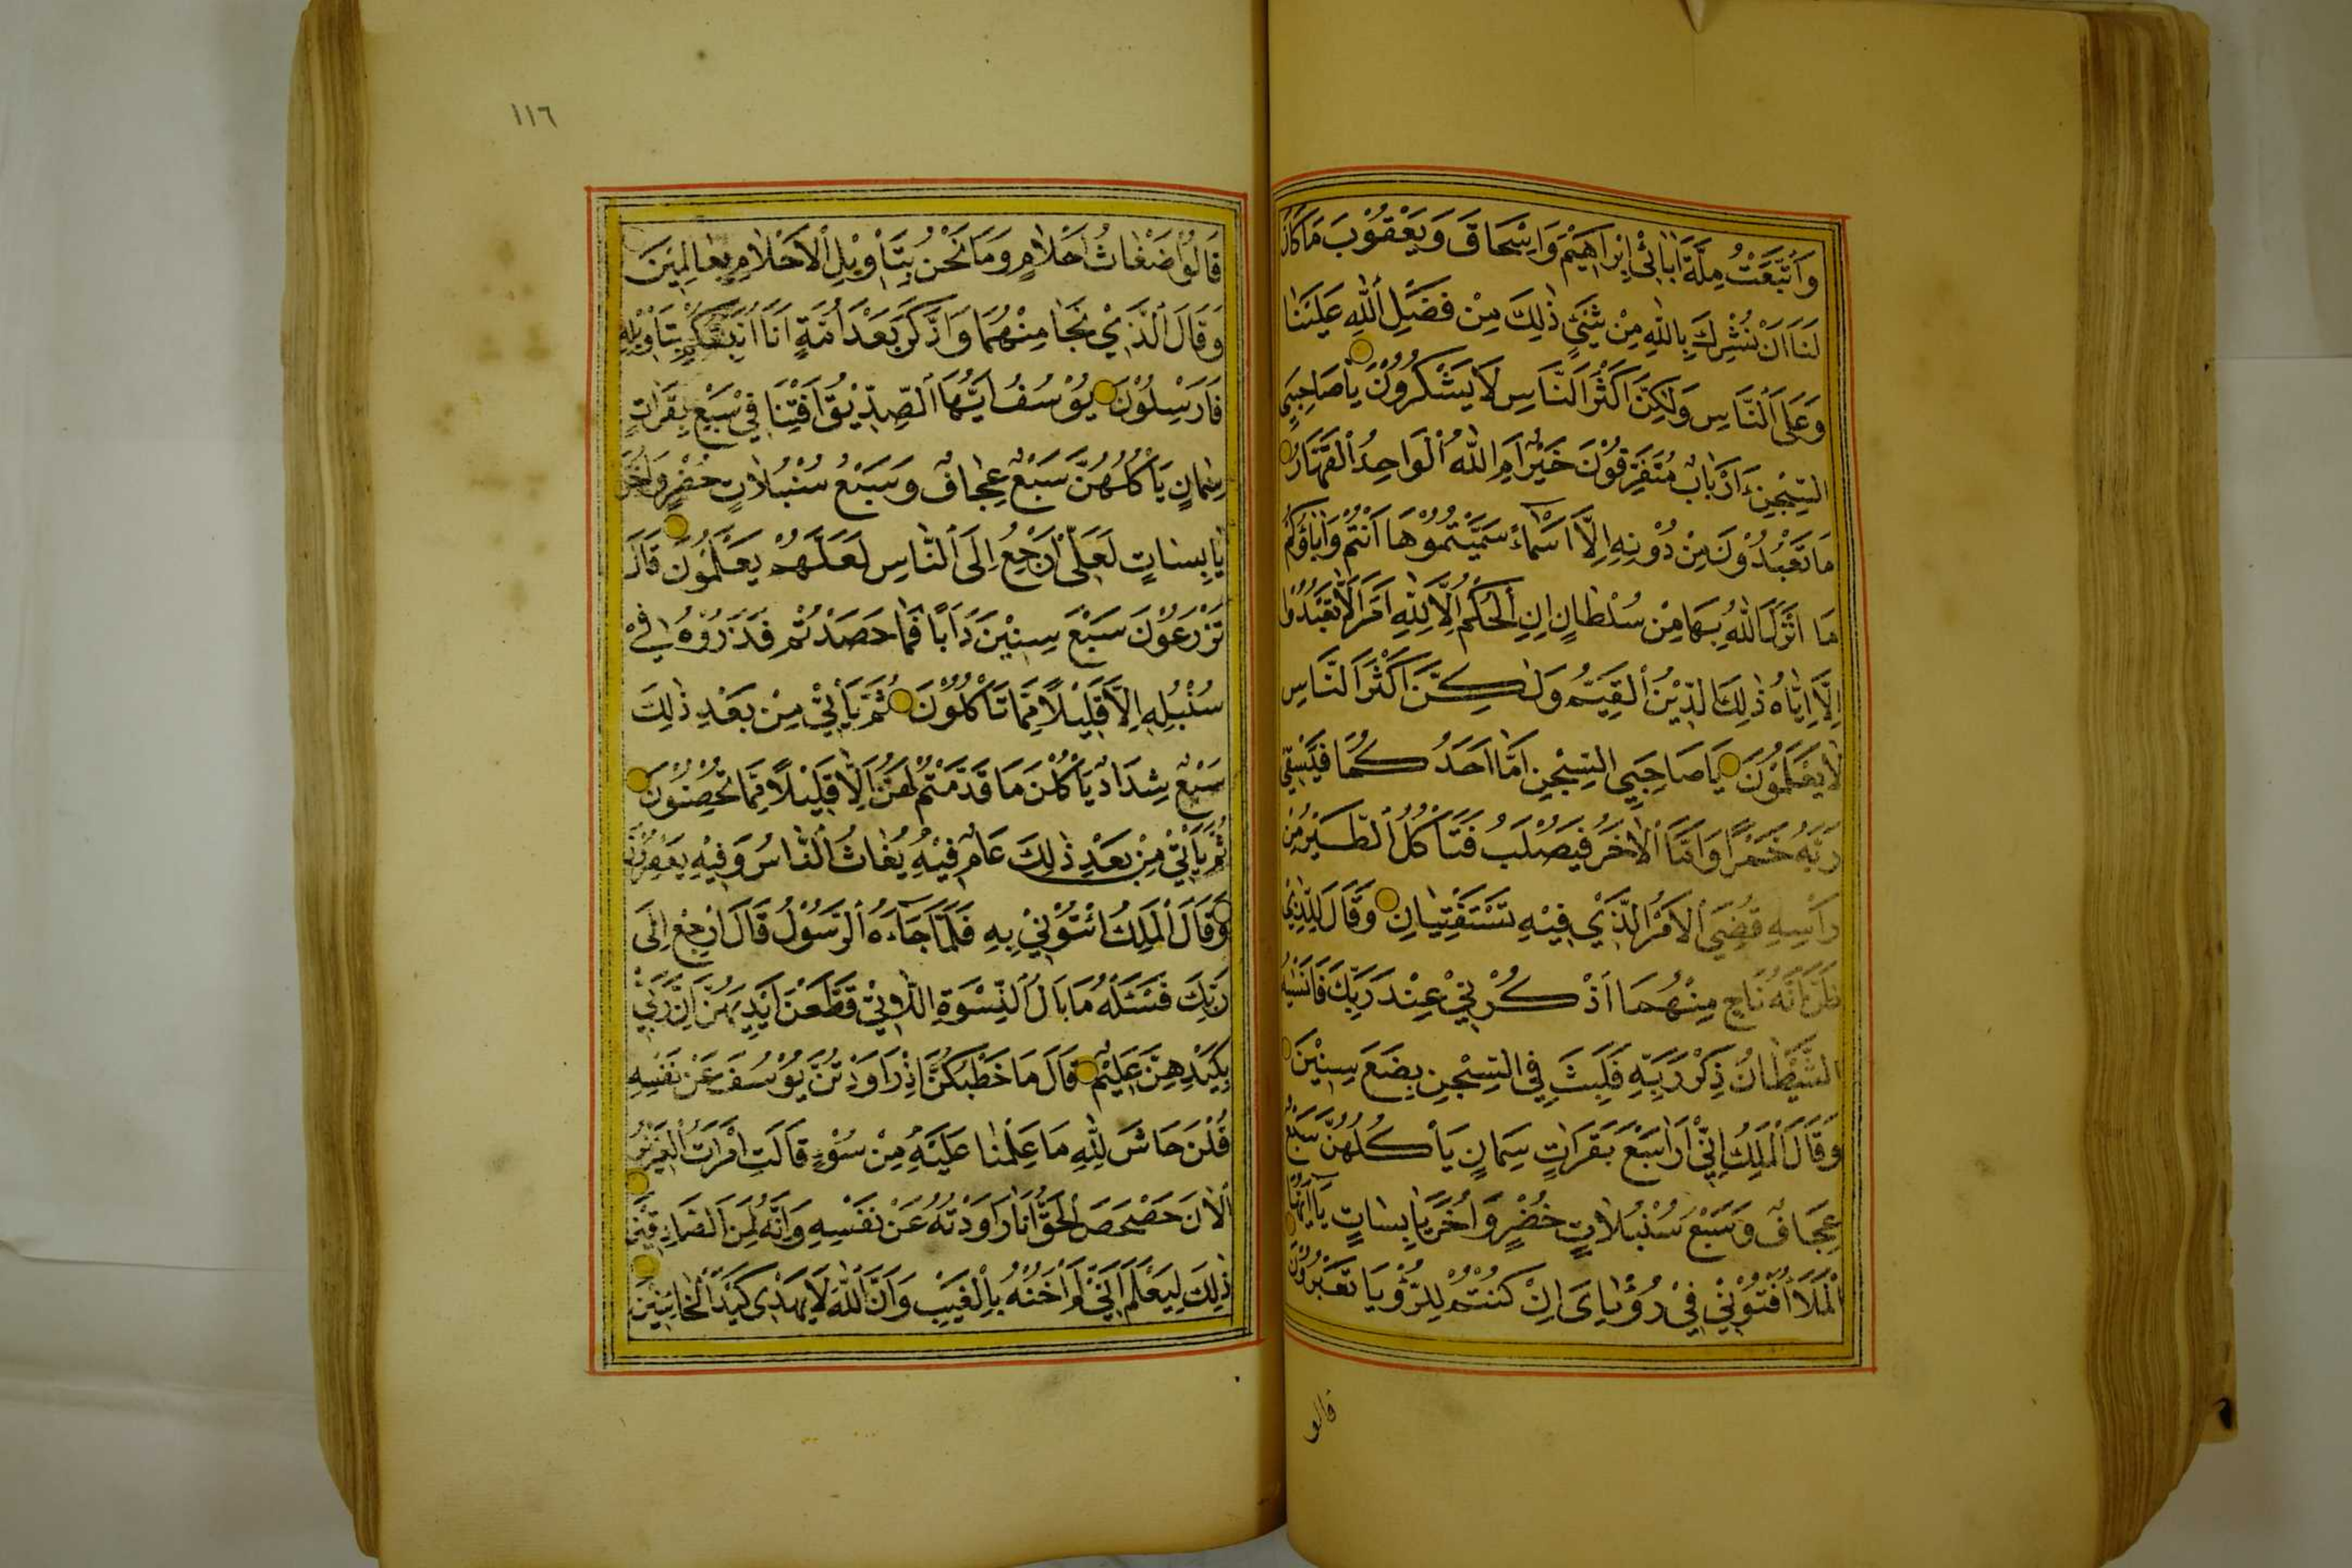 وَاتَّبَعْتُ مِلَّةَ اٰبَائِ اِبْرَاهِيْمَ وَاِسْحَاقَ وَيَعْقُوْبَ مَا كَانَ
لَنَا اَنْ نُشْرِكَ بِاللّٰهِ مِنْ شَيْءٍ ذٰلِكَ مِنْ فَضْلِ اللّٰهِ عَلَيْنَا
وَعَلَى النَّاسِ وَلٰكِنَّ اَكْثَرَ النَّاسِ لَا يَشْكُرُوْنَ يَا صَاحِبَيِ
السِّجْنِ ءَاَرْبَابٌ مُتَفَرِّقُوْنَ خَيْرٌ اَمِ اللّٰهُ الْوَاحِدُ الْقَهَّارُ
مَا تَعْبُدُوْنَ مِنْ دُوْنِهِ اِلَّا اَسْمَاءً سَمَّيْتُمُوْهَا اَنْتُمْ وَاٰبَاؤُكُمْ
مَا اَنْزَلَ اللّٰهُ بِهَا مِنْ سُلْطَانٍ اِنِ الْحُكْمُ اِلَّا لِلّٰهِ اَمَرَ اَلَّا تَعْبُدُوْا
اِلَّا اِيَّاهُ ذٰلِكَ الدِّيْنُ الْقَيِّمُ وَلٰكِنَّ اَكْثَرَ النَّاسِ
لَا يَعْلَمُوْنَ يَا صَاحِبَيِ السِّجْنِ اَمَّا اَحَدُكُمَا فَيَسْقِيْ
رَبَّهُ خَمْرًا وَاَمَّا الْاٰخَرُ فَيُصْلَبُ فَتَأْكُلُ الطَّيْرُ مِنْ
رَأْسِهِ قُضِيَ الْاَمْرُ الَّذِيْ فِيْهِ تَسْتَفْتِيَانِ وَقَالَ لِلَّذِيْ
ظَنَّ اَنَّهُ نَاجٍ مِنْهُمَا اذْكُرْنِيْ عِنْدَ رَبِّكَ فَاَنْسٰيهُ
الشَّيْطَانُ ذِكْرَ رَبِّهِ فَلَبِثَ فِي السِّجْنِ بِضْعَ سِنِيْنَ
وَقَالَ الْمَلِكُ اِنِّيْ اَرَا سَبْعَ بَقَرَاتٍ سِمَانٍ يَأْكُلُهُنَّ سَبْعٌ
عِجَافٌ وَسَبْعَ سُنْبُلَاتٍ خُضْرٍ وَاُخَرَ يَابِسَاتٍ يَا اَيُّهَا
الْمَلَاُ اَفْتُوْنِيْ فِيْ رُؤْيَايَ اِنْ كُنْتُمْ لِلرُّؤْيَا تَعْبُرُوْنَ
قالو
١١٦
قَالُوْا اَضْغَاثُ اَحْلَامٍ وَمَا نَحْنُ بِتَأْوِيْلِ الْاَحْلَامِ بِعَالِمِيْنَ
وَقَالَ الَّذِيْ نَجَا مِنْهُمَا وَادَّكَرَ بَعْدَ اُمَّةٍ اَنَا اُنَبِّئُكُمْ بِتَأْوِيْلِهِ
فَاَرْسِلُوْنَ يُوْسُفُ اَيُّهَا الصِّدِّيْقُ اَفْتِنَا فِيْ سَبْعِ بَقَرَاتٍ
سِمَانٍ يَأْكُلُهُنَّ سَبْعٌ عِجَافٌ وَسَبْعُ سُنْبُلَاتٍ خُضْرٍ وَاُخَرَ
يَابِسَاتٍ لَعَلِّيْ اَرْجِعُ اِلَى النَّاسِ لَعَلَّهُمْ يَعْلَمُوْنَ قَالَ
تَزْرَعُوْنَ سَبْعَ سِنِيْنَ دَاَبًا فَمَا حَصَدْتُمْ فَذَرُوْهُ فِيْ
سُنْبُلِهِ اِلَّا قَلِيْلًا مِمَّا تَأْكُلُوْنَ ثُمَّ يَأْتِيْ مِنْ بَعْدِ ذٰلِكَ
سَبْعٌ شِدَادٌ يَأْكُلْنَ مَا قَدَّمْتُمْ لَهُنَّ اِلَّا قَلِيْلًا مِمَّا تُحْصِنُوْنَ
ثُمَّ يَأْتِيْ مِنْ بَعْدِ ذٰلِكَ عَامٌ فِيْهِ يُغَاثُ النَّاسُ وَفِيْهِ يَعْصِرُوْنَ
وَقَالَ الْمَلِكُ ائْتُوْنِيْ بِهِ فَلَمَّا جَاءَهُ الرَّسُوْلُ قَالَ ارْجِعْ اِلٰى
رَبِّكَ فَسْئَلْهُ مَا بَالُ النِّسْوَةِ اللَّاتِيْ قَطَّعْنَ اَيْدِيَهُنَّ اِنَّ رَبِّيْ
بِكَيْدِهِنَّ عَلِيْمٌ قَالَ مَا خَطْبُكُنَّ اِذْ رَاوَدْتُنَّ يُوْسُفَ عَنْ نَفْسِهِ
قُلْنَ حَاشَ لِلّٰهِ مَا عَلِمْنَا عَلَيْهِ مِنْ سُوْءٍ قَالَتِ امْرَاَتُ الْعَزِيْزِ
الْاٰنَ حَصْحَصَ الْحَقُّ اَنَا رَاوَدْتُهُ عَنْ نَفْسِهِ وَاِنَّهُ لَمِنَ الصَّادِقِيْنَ
ذٰلِكَ لِيَعْلَمَ اَنِّيْ لَمْ اَخُنْهُ بِالْغَيْبِ وَاَنَّ اللّٰهَ لَا يَهْدِيْ كَيْدَ الْخَائِنِيْنَ